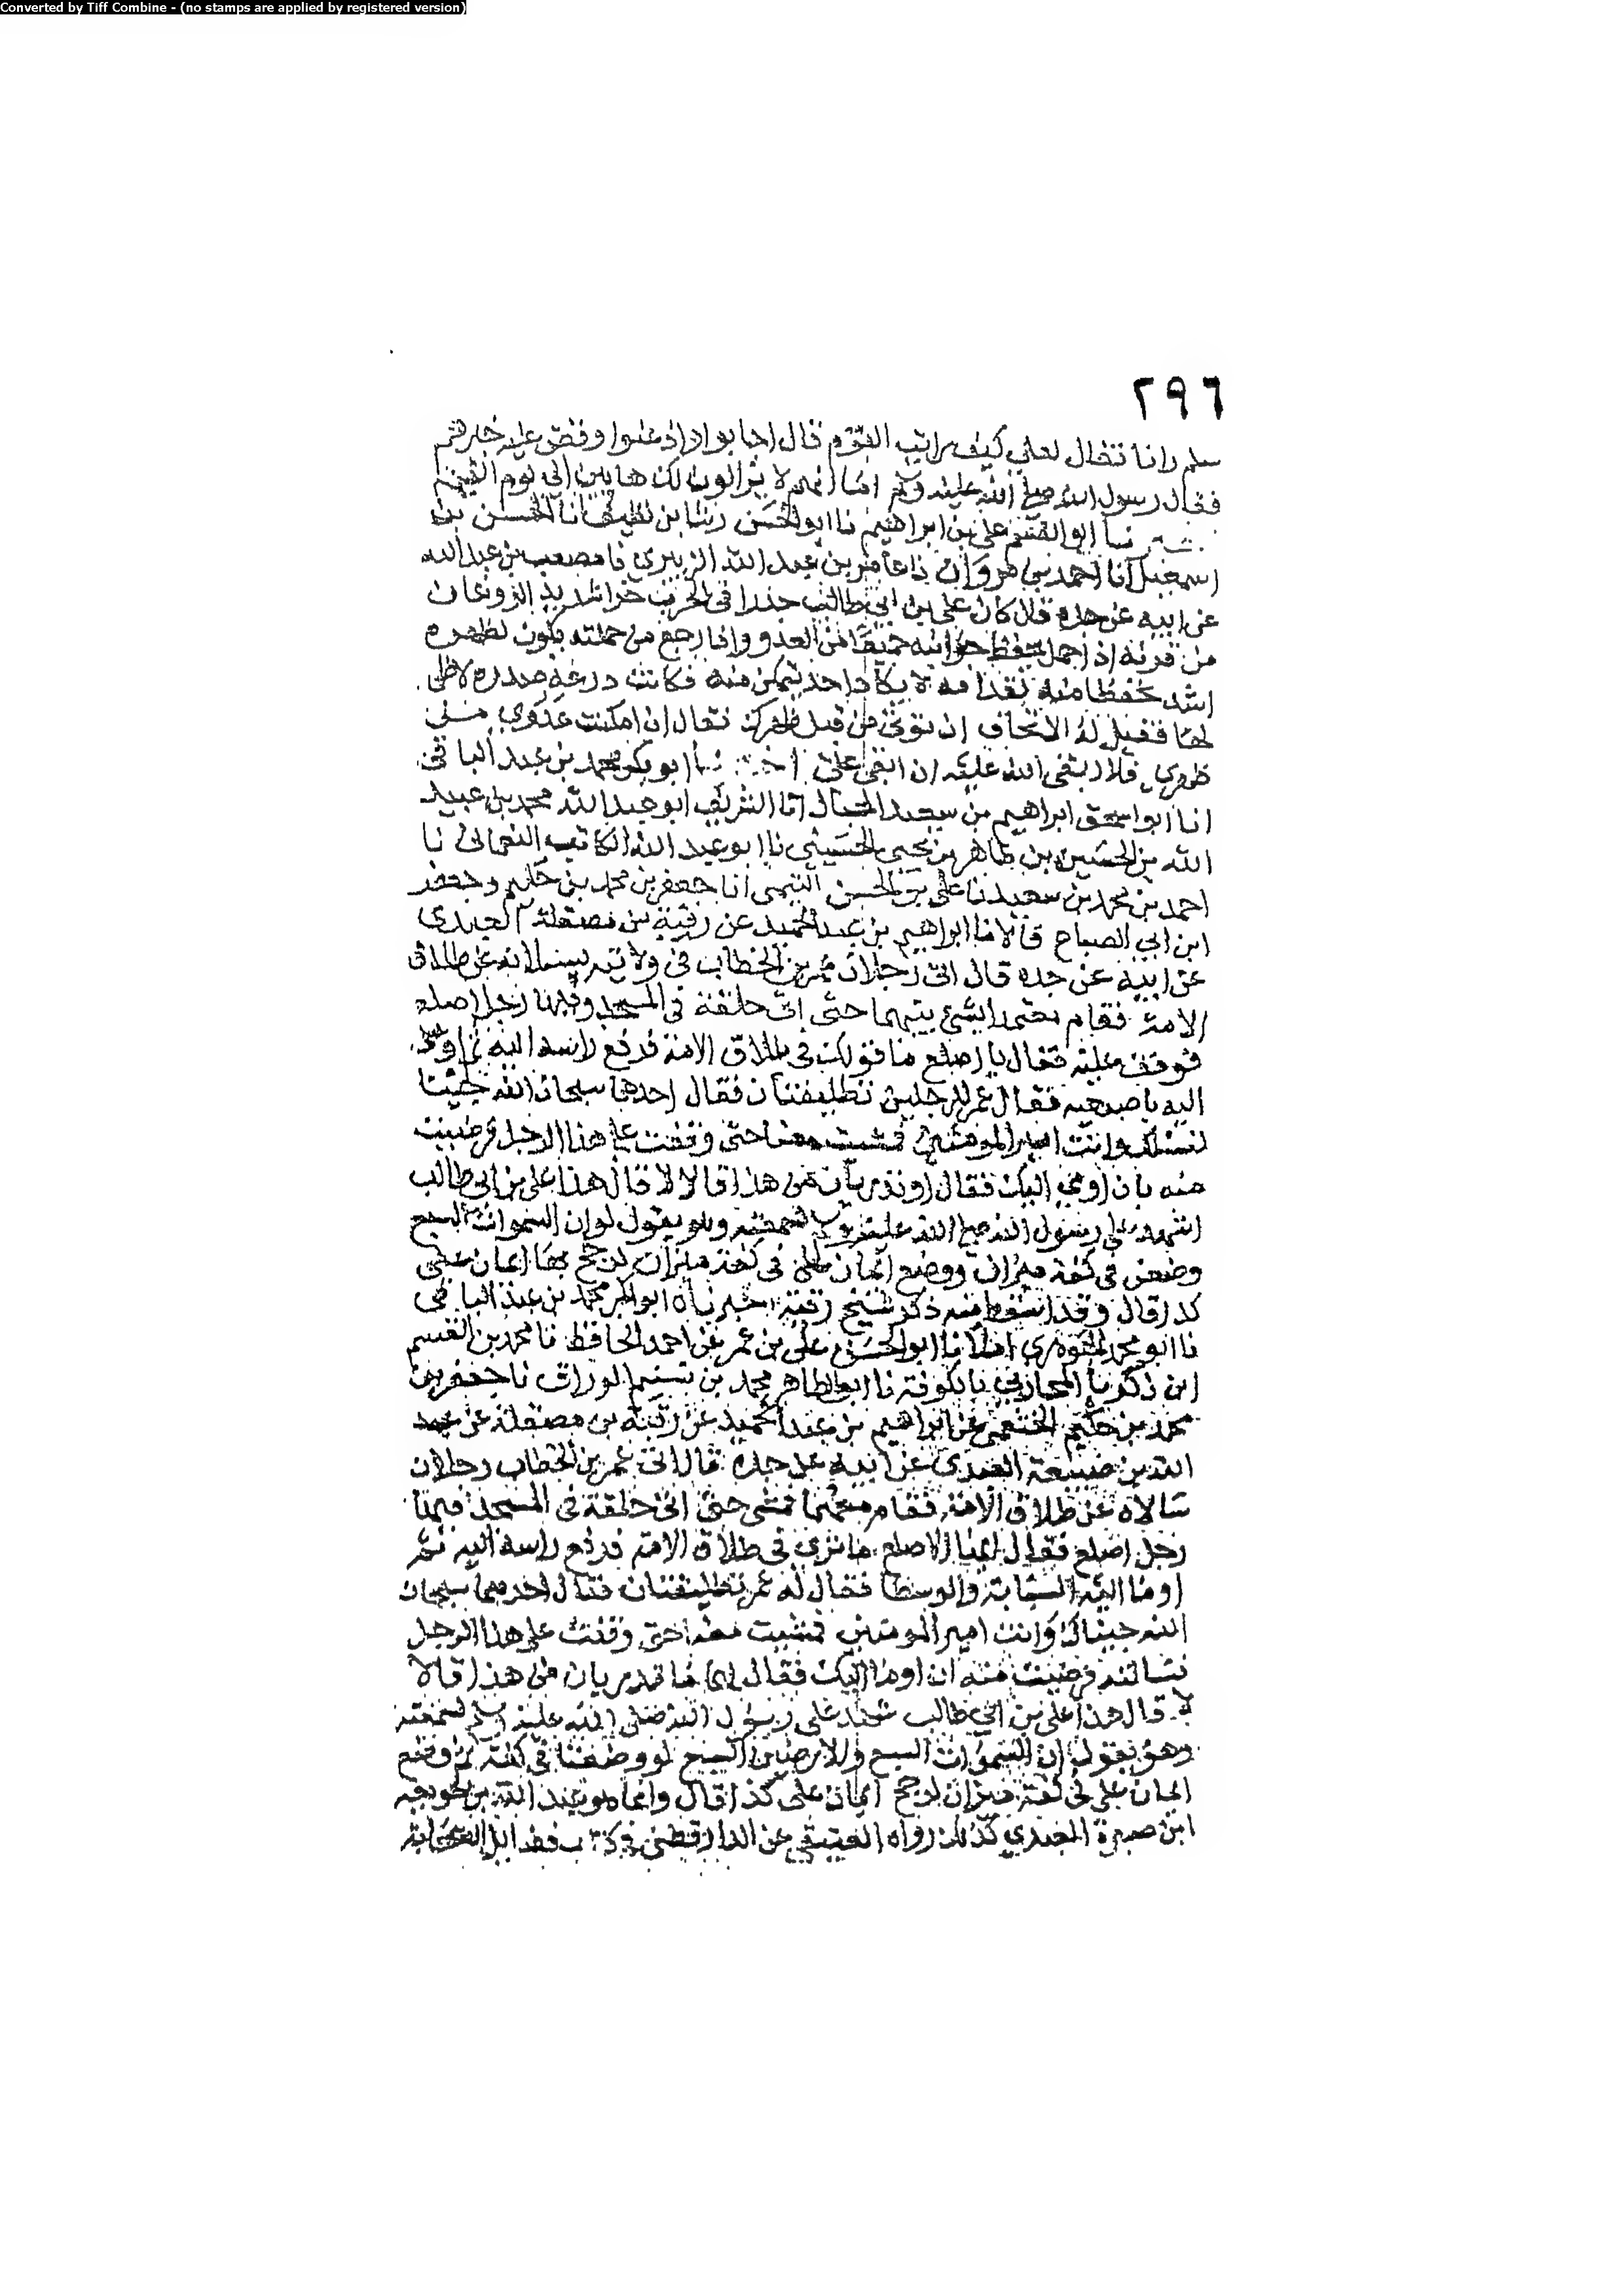 Converted by Tiff Combine - (no stamps are applied by registered version)
٢٩٦
سلم وانا فقال لعلي كيف رايت القوم قال اجابوا اذ اذعنوا وقص عليه خبرهم
فقال رسول الله صلى الله عليه وسلم اما انهم لا يزالون لك هايبين الى يوم القيمة
نا ابو القسم علي بن ابراهيم نا ابو الحسن رشا بن نظيف نا الحسن بن
اسمعيل انا احمد بن مروان نا عامر بن عبد الله الزبيري نا مصعب بن عبد الله
عن ابيه عن جده قال كان علي بن ابي طالب حذرا في الحرب شديد الروغان
من قرنه اذا حمل يحفظ جوانبه جميعا من العدو واذا رجع من حملته يكون لظهره
اشد تحفظا منه لقدامه لا يكاد احد يتمكن منه فكانت درعه صدره لا ظهر
لها فقيل له الا تخاف ان توتى من قبل ظهرك فقال ان امكنت عدوي من
ظهري فلا ابقى الله عليه ان ابقى علي ابو بكر محمد بن عبد الباقي
انا ابو اسحق ابراهيم بن سعيد الحبال انا الشريف ابو عبد الله محمد بن عبيد
الله بن الحسين بن طاهر بن يحيى الحسيني نا ابو عبد الله الكاتب النعماني نا
احمد بن محمد بن سعيد نا علي بن الحسن التيمي انا جعفر بن محمد بن حكيم وجعفر
ابن ابي الصباح قالا نا ابراهيم بن عبد الحميد عن رقبة بن مصقلة العبدي
عن ابيه عن جده قال اتى رجلان عمر بن الخطاب في ولايته يسئلانه عن طلاق
الامة فقام معتمدا بشي بينهما حتى اتى حلقة في المسجد وفيها رجل اصلع
فوقف عليه فقال يا اصلع ما قولك في طلاق الامة فرفع راسه اليه ثم اومى
اليه باصبعيه فقال عمر للرجلين تطليقتان فقال احدهما سبحان الله جئنا
لنسئلك وانت امير المومنين فمشيت معنا حتى وقفت على هذا الرجل فرضيت
منه بان اومي اليك فقال او تدريان من هذا قالا لا قال هذا علي بن ابي طالب
اشهد على رسول الله صلى الله عليه وسلم لسمعته وهو يقول لو ان السموات السبع
وضعن في كفة ميزان ووضع ايمان علي في كفة ميزان لرجح بها ايمان علي
كذا قال وقد اسقط منه ذكر شيخ رقبة اخبرناه ابو بكر محمد بن عبد الباقي
نا ابو محمد الجوهري املا نا ابو الحسن علي بن عمر بن احمد الحافظ نا محمد بن القسم
ابن زكريا المحاربي بالكوفة نا ابو الطاهر محمد بن تسنيم الوراق نا جعفر بن
محمد بن حكيم الخثعمي عن ابراهيم بن عبد الحميد عن رقبة بن مصقلة عن عبد
الله بن ضبيعة العبدي عن ابيه عن جده قال اتى عمر بن الخطاب رجلان
سالاه عن طلاق الامة فقام معهما فمشى حتى اتى حلقة في المسجد فيها
رجل اصلع فقال ايها الاصلع ما ترى في طلاق الامة فرفع راسه اليه ثم
اوما اليه السبابة والوسطا فقال له عمر تطليقتان فقال احدهما سبحان
الله جيناك وانت امير المومنين فمشيت معنا حتى وقفت على هذا الرجل
فسالته فرضيت منه ان اوما اليك فقال لهما ما تدريان من هذا قالا
لا قال هذا علي بن ابي طالب شهد على رسول الله صلى الله عليه وسلم لسمعته
وهو يقول ان السموات السبع والارضين السبع لو وضعتا في كفة ثم وضع
ايمان علي في كفة ميزان لرجح ايمان علي كذا قال وانما هو عبد الله بن خوتعة
ابن صبرة العبدي كذلك رواه العتيقي عن الدارقطني في كتاب فضايل الصحابة